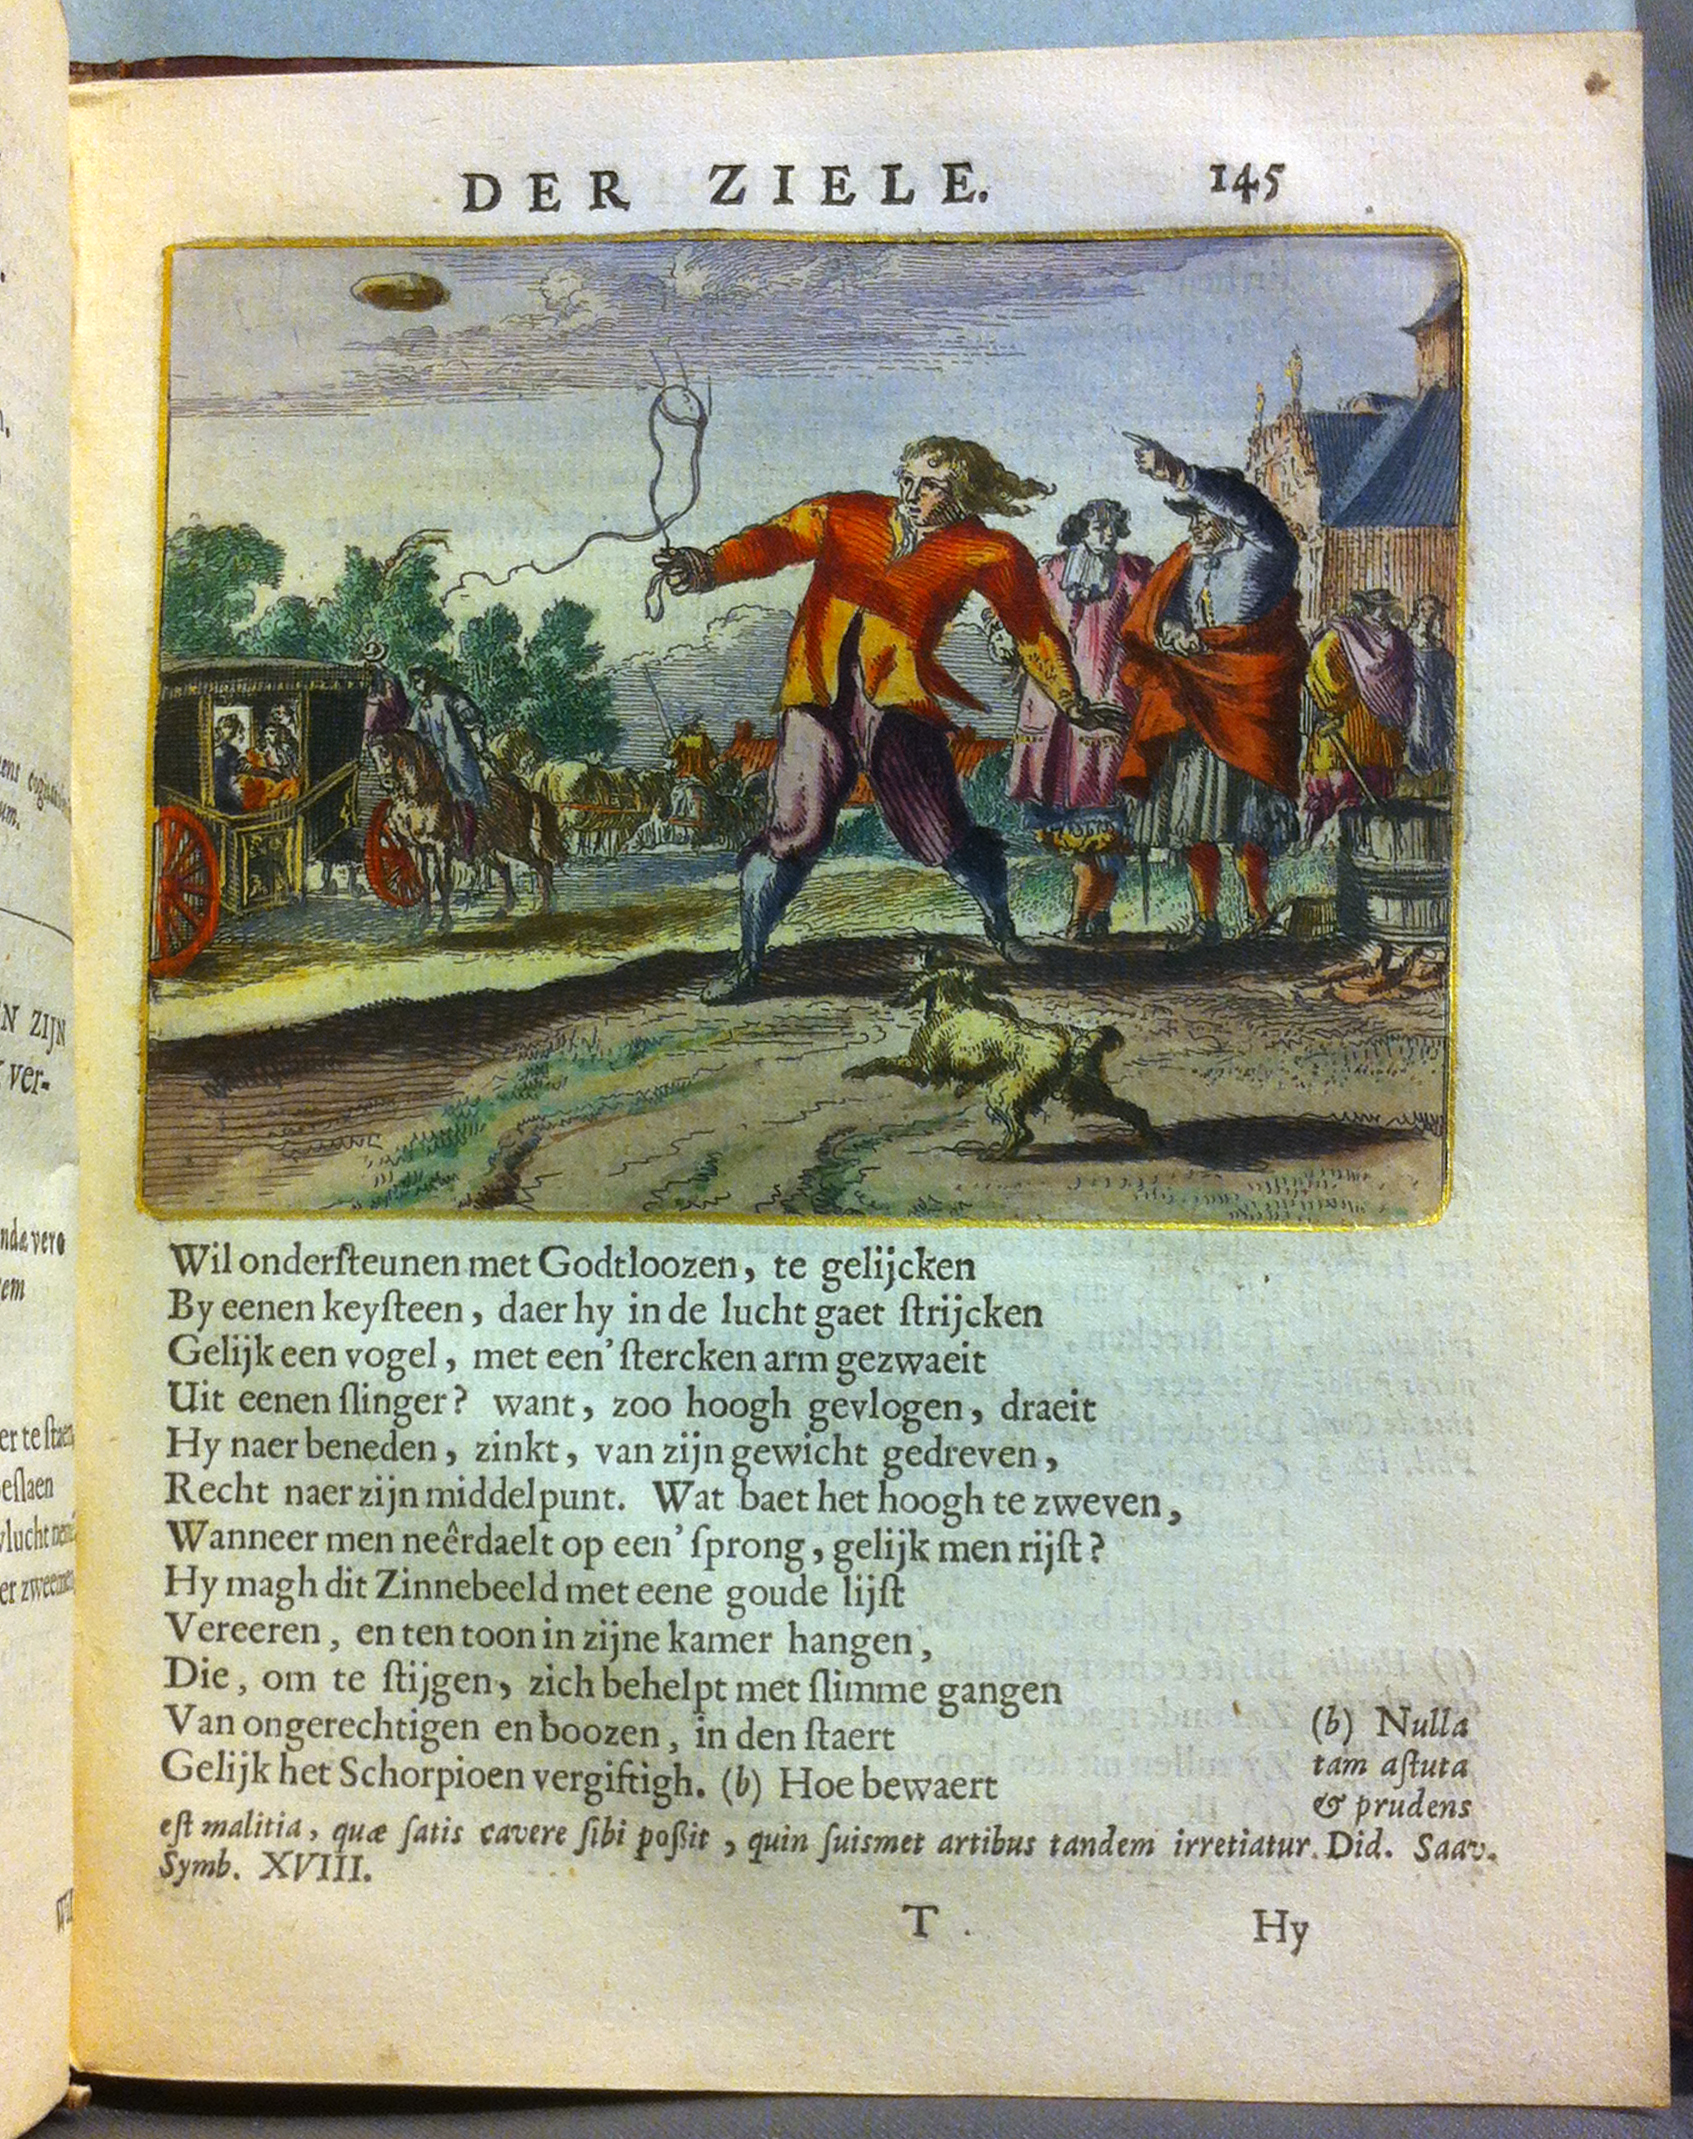 DER ZIELE. 145
Wil onderſteunen met Godtloozen, te gelijcken
By eenen keyſteen, daer hy in de lucht gaet ſtrijcken
Gelijk een vogel, met een' ſtercken arm gezwaeit
Uit eenen ſlinger? want, zoo hoogh gevlogen, draeit
Hy naer beneden, zinkt, van zijn gewicht gedreven,
Recht naer zijn middelpunt. Wat baet het hoogh te zweven,
Wanneer men neêrdaelt op een' ſprong, gelijk men rijſt?
Hy magh dit Zinnebeeld met eene goude lijſt
Vereeren, en ten toon in zijne kamer hangen,
Die, om te ſtijgen, zich behelpt met ſlimme gangen
Van ongerechtigen en boozen, in den ſtaert
Gelijk het Schorpioen vergiftigh. (b) Hoe bewaert
(b) Nulla
tam aſtuta
& prudens
eſt malitia, quæ ſatis cavere ſibi poßit, quin ſuismet artibus tandem irretiatur. Did. Saav.
Symb. XVIII.
T Hy
N ZIJN
ver-
ndæ vero
em
er te ſtaen
eſlaen